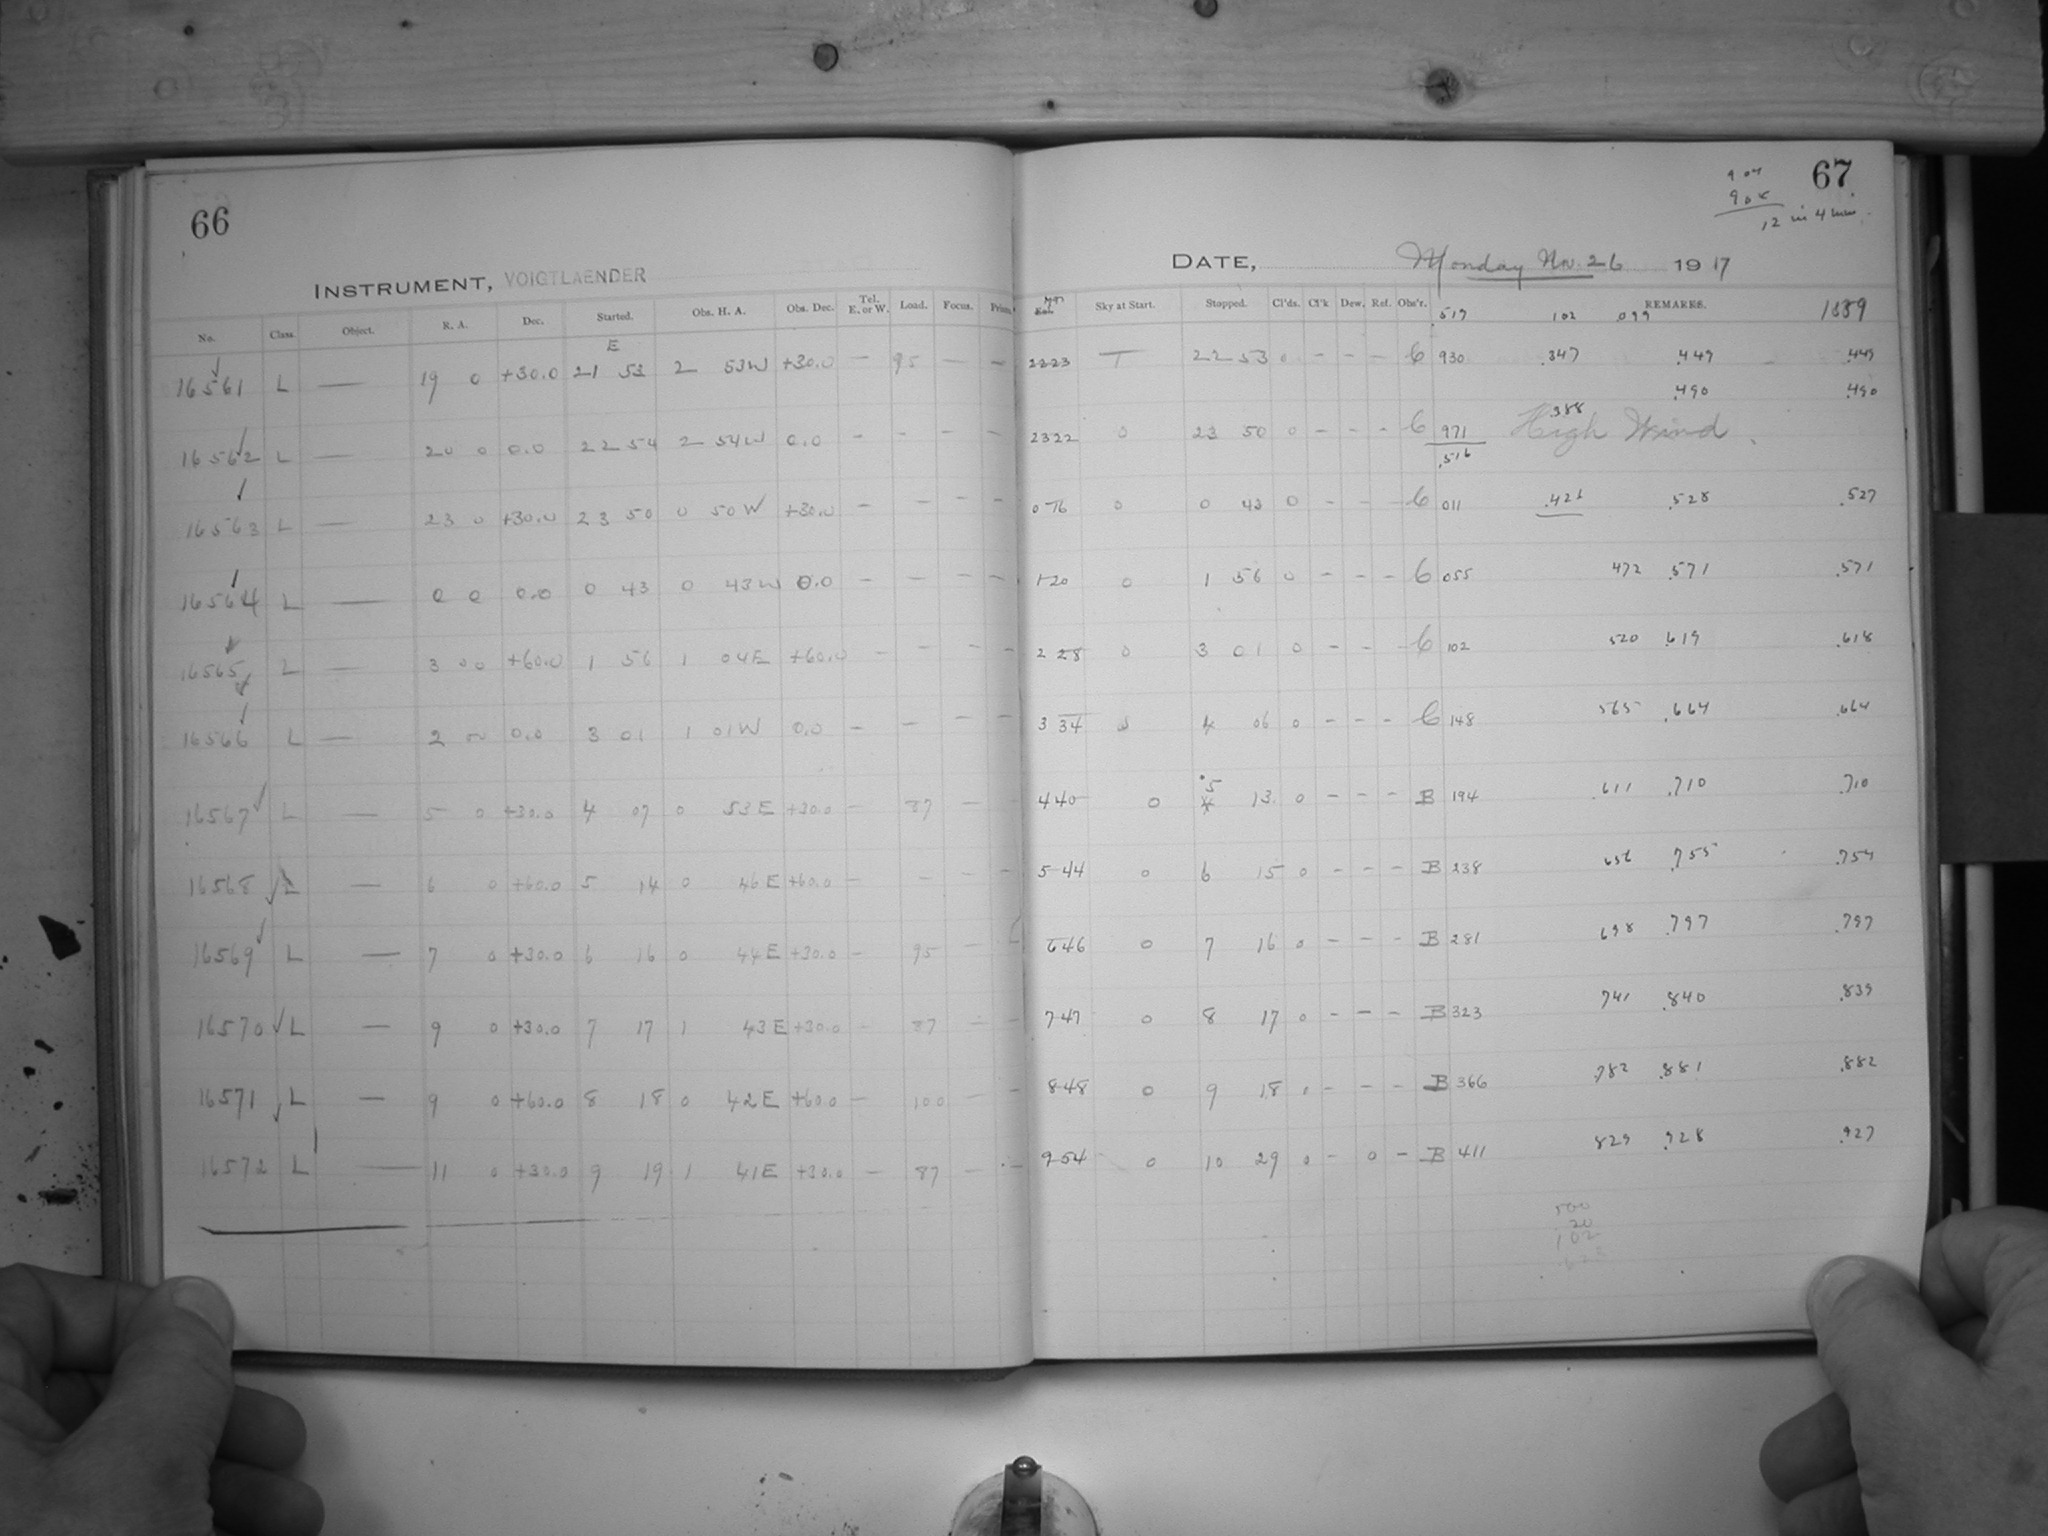 66
INSTRUMENT, VOIGTLAENDER
No. Class. Object. R. A. Dec. Started. Obs. H. A. Obs. Dec. Tel. E. or W. Load. Focus.
E
16561 L — 19 0 +30.0 21 53 2 53W +30.0 — 95 — —
16562 L — 20 0 0.0 22 54 2 54W 0.0 - - - -
16563 L — 23 0 +30.0 23 50 0 50W +30.0 - - - -
16564 L — 0 0 0.0 0 43 0 43W 0.0 - - - -
16565 L — 3 00 +60.0 1 56 1 04E +60.0 - - - -
16566 L — 2 00 0.0 3 01 1 01W 0.0 - - - -
16567 L — 5 0 +30.0 4 07 0 53E +30.0 - 87 - -
16568 L — 6 0 +60.0 5 14 0 46E +60.0 - - - -
16569 L — 7 0 +30.0 6 16 0 44E +30.0 - 95 -
16570 L — 9 0 +30.0 7 17 1 43E +30.0 - 87 - -
16571 L — 9 0 +60.0 8 18 0 42E +60.0 - 100 - -
16572 L — 11 0 +30.0 9 19 1 41E +30.0 - 87 - -
67
12 in 4 min.
DATE, Monday Nov. 26 1917
Sky at Start. Stopped. Cl'ds. Cl'k Dew. Ref. Obs'r. REMARKS.
.517 102 .099 1889
2223 T 22 53 0 - - - C 930 .347 .449 .449
.490 .490
2322 0 23 50 0 - - - C 971 388 High Wind
.516
0 16 0 0 43 0 - - - C 011 .426 .528 .527
1 20 0 1 56 0 - - - C 055 472 .571 .571
2 28 0 3 01 0 - - - C 102 520 .619 .618
3 34 0 4 06 0 - - - C 148 565 .664 .664
4 40 0 5 13 0 - - - B 194 .611 .710 .710
5 44 0 6 15 0 - - - B 238 656 .755 .754
6 46 0 7 16 0 - - - B 281 698 .797 .797
7 47 0 8 17 0 - - - B 323 741 .840 .839
8 48 0 9 18 0 - - - B 366 782 .881 .882
9 54 0 10 29 0 - 0 - B 411 829 .928 .927
500
20
102